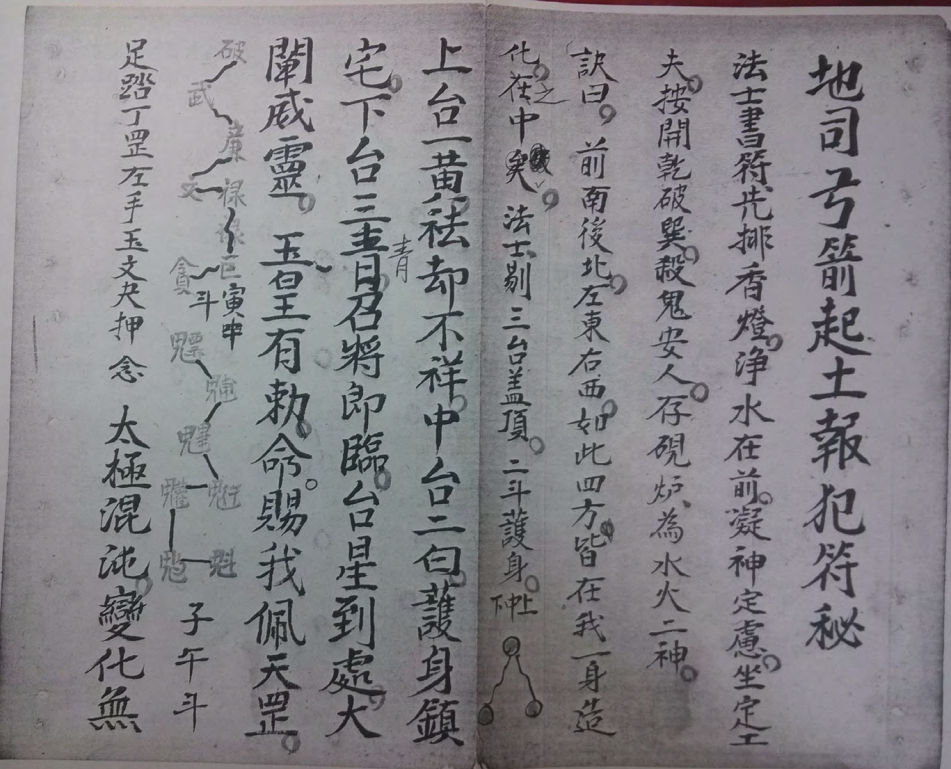 地司弓箭起土報犯符秘
法士書符先排香燈淨水在前凝神定慮坐定工
夫按開乾破巽殺鬼安人存硯炉為水火二神
訣曰前南後北左東右西如此四方皆在我一身造
化在之中矣法士剔三台盖頂二斗護身
上中下
上台一黄祛却不祥中台二白護身鎮
宅下台三青召將即臨台星到處大
青
闡威靈玉皇有勅命賜我佩天罡
破武廉文祿巨貪
寅申斗
魓
魁
子午斗
足踏丁罡左手玉文夬押念太極混沌變化無